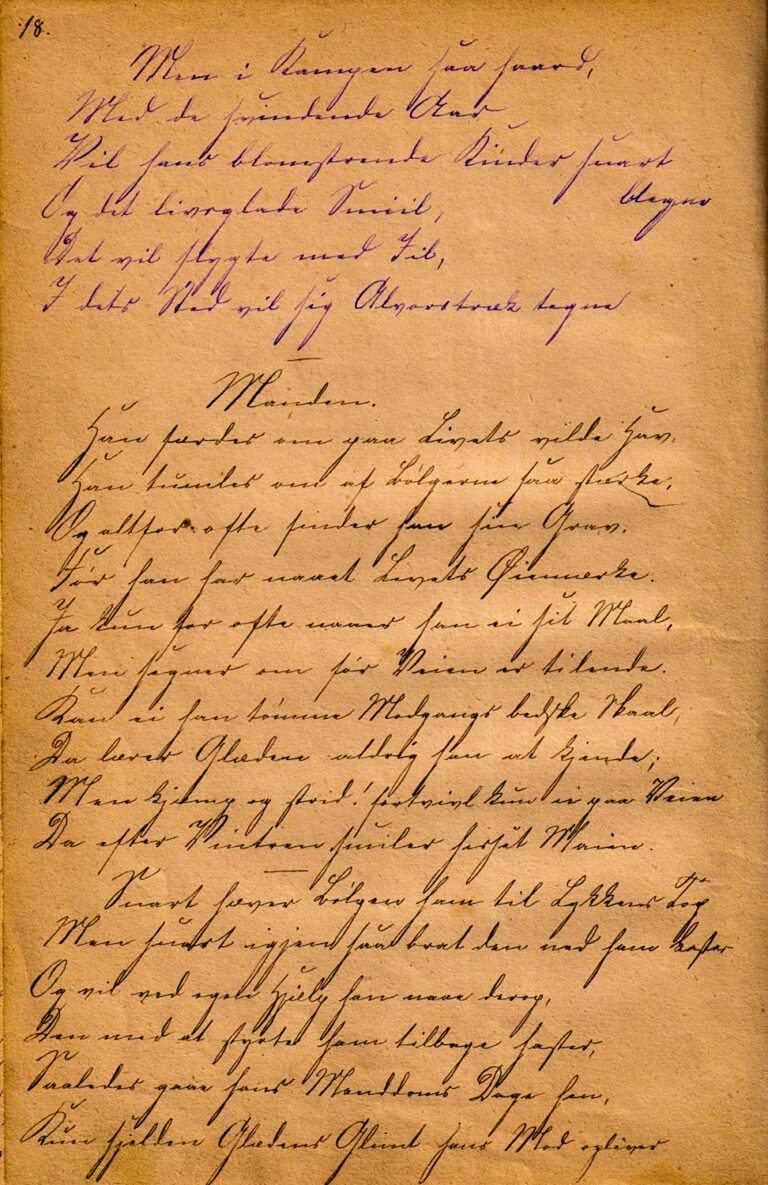 18.
Men i Kampen saa haard,
Med de svindende Aar
Vil hans blomstrende Kinder snart
blegne
Og det livsglade Smiil,
Det vil flygte med Iil,
I dets Sted vil sig Alvorstræk tegne
Manden.
Han færdes om paa Livets vilde Hav,
Han tumles om af Bølgerne saa stærke,
Og altfor ofte finder han sin Grav,
Før han har naaet Livets Øiemærke.
Ja kun for ofte naaer han ei sit Maal,
Men segner om før Veien er tilende.
Kan ei han tømme Modgangs bedske Skaal,
Da lærer Glæden aldrig han at kjende;
Men kjæmp og strid! fortvivl kun ei paa Veien
Da efter Vintren smiler Maien.
Snart hæver Bølgen ham til Lykkens Top
Men snart igjen saa brat den ned ham kaster
Og vil ved egen Hjælp han naae derop,
Den med at styrte ham tilbage haster,
Saaledes gaae hans Manddoms Dage hen,
Kun sjelden Glædens Glimt hans Mod opliver